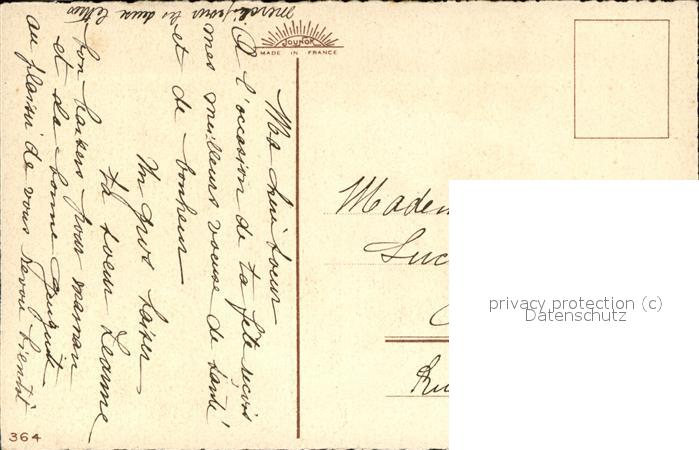 merci pour les deux lettres
Ma chère soeur
A l'occasion de ta fête reçois
mes meilleurs voeux de santé
et de bonheur
Un gros baiser
ta soeur Jeanne
bon baisers pour maman
et la bonne
au plaisir de vous revoir bientôt
JOUNOK
MADE IN FRANCE
Madem
Luc
Ru
privacy protection (c)
Datenschutz
364